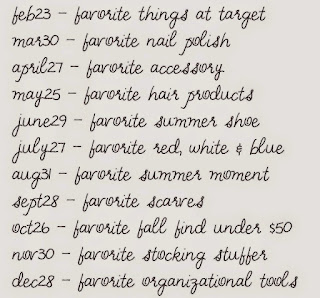 feb23 - favorite things at target
mar30 - favorite nail polish
april27 - favorite accessory
may25 - favorite hair products
june29 - favorite summer shoe
july27 - favorite red, white & blue
aug31 - favorite summer moment
sept28 - favorite scarves
oct26 - favorite fall find under $50
nov30 - favorite stocking stuffer
dec28 - favorite organizational tools